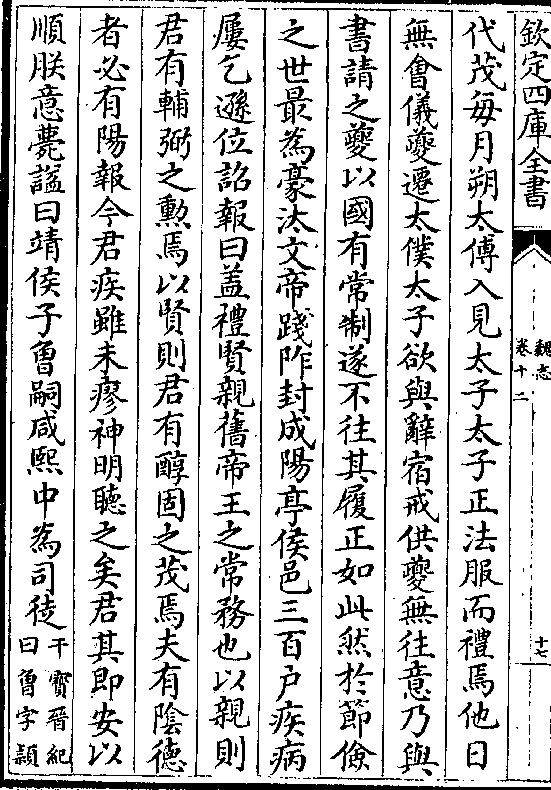 欽定四庫全書
魏志
卷十二
十七
代茂每月朔太傅入見太子太子正法服而禮焉他日
無會儀夔遷太僕太子欲與辭宿戒供夔無往意乃與
書請之夔以國有常制遂不往其履正如此然於節儉
之世最為豪汰文帝踐阼封成陽亭侯邑三百户疾病
屢乞遜位詔報曰盖禮賢親舊帝王之常務也以親則
君有輔弼之勲焉以賢則君有醇固之茂焉夫有隂德
者必有陽報今君疾雖未瘳神明聽之矣君其即安以
順朕意薨諡曰靖侯子曾嗣咸熙中為司徒
干寳晉紀
曰曾字頴